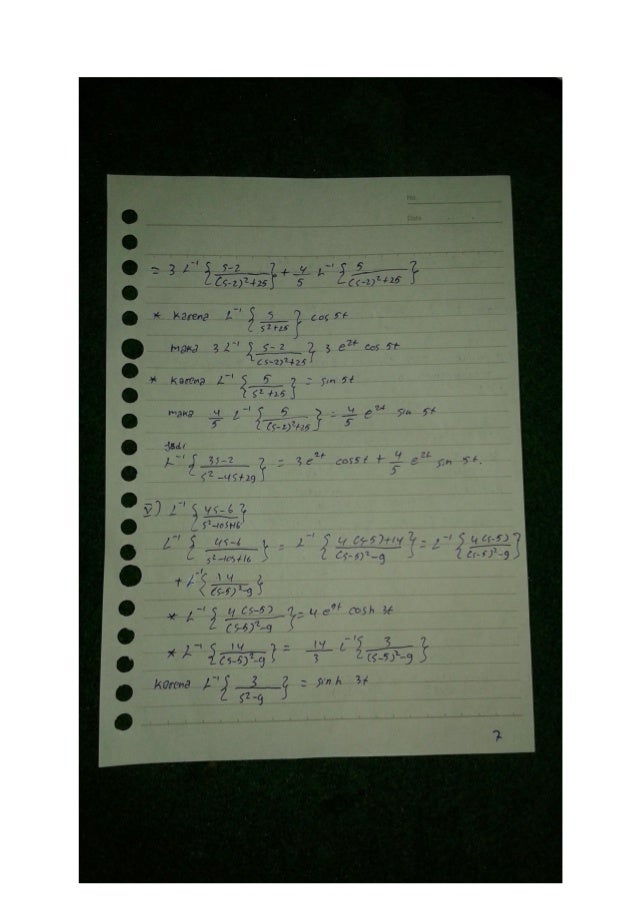 No.
Date
= 3 L⁻¹ {s-2/(s-2)²+25} + 4/5 L⁻¹ {5/(s-2)²+25}
* Karena L⁻¹ {s/s²+25} cos 5t
maka 3 L⁻¹ {s-2/(s-2)²+25} 3 e²ᵗ cos 5t
* Karena L⁻¹ {5/s²+25} = sin 5t
maka 4/5 L⁻¹ {5/(s-2)²+25} = 4/5 e²ᵗ sin 5t
Jadi
L⁻¹ {3s-2/s²-4s+29} = 3e²ᵗ cos5t + 4/5 e²ᵗ sin 5t.
V) L⁻¹ {4s-6/s²-10s+16}
L⁻¹ {4s-6/s²-10s+16} = L⁻¹ {4(s-5)+14/(s-5)²-9} = L⁻¹ {4(s-5)/(s-5)²-9}
+ L⁻¹ {14/(s-5)²-9}
* L⁻¹ {4(s-5)/(s-5)²-9} = 4 cosh 3t
* L⁻¹ {14/(s-5)²-9} = 14/3 L⁻¹ {3/(s-5)²-9}
Karena L⁻¹ {3/s²-9} = sinh 3t
7